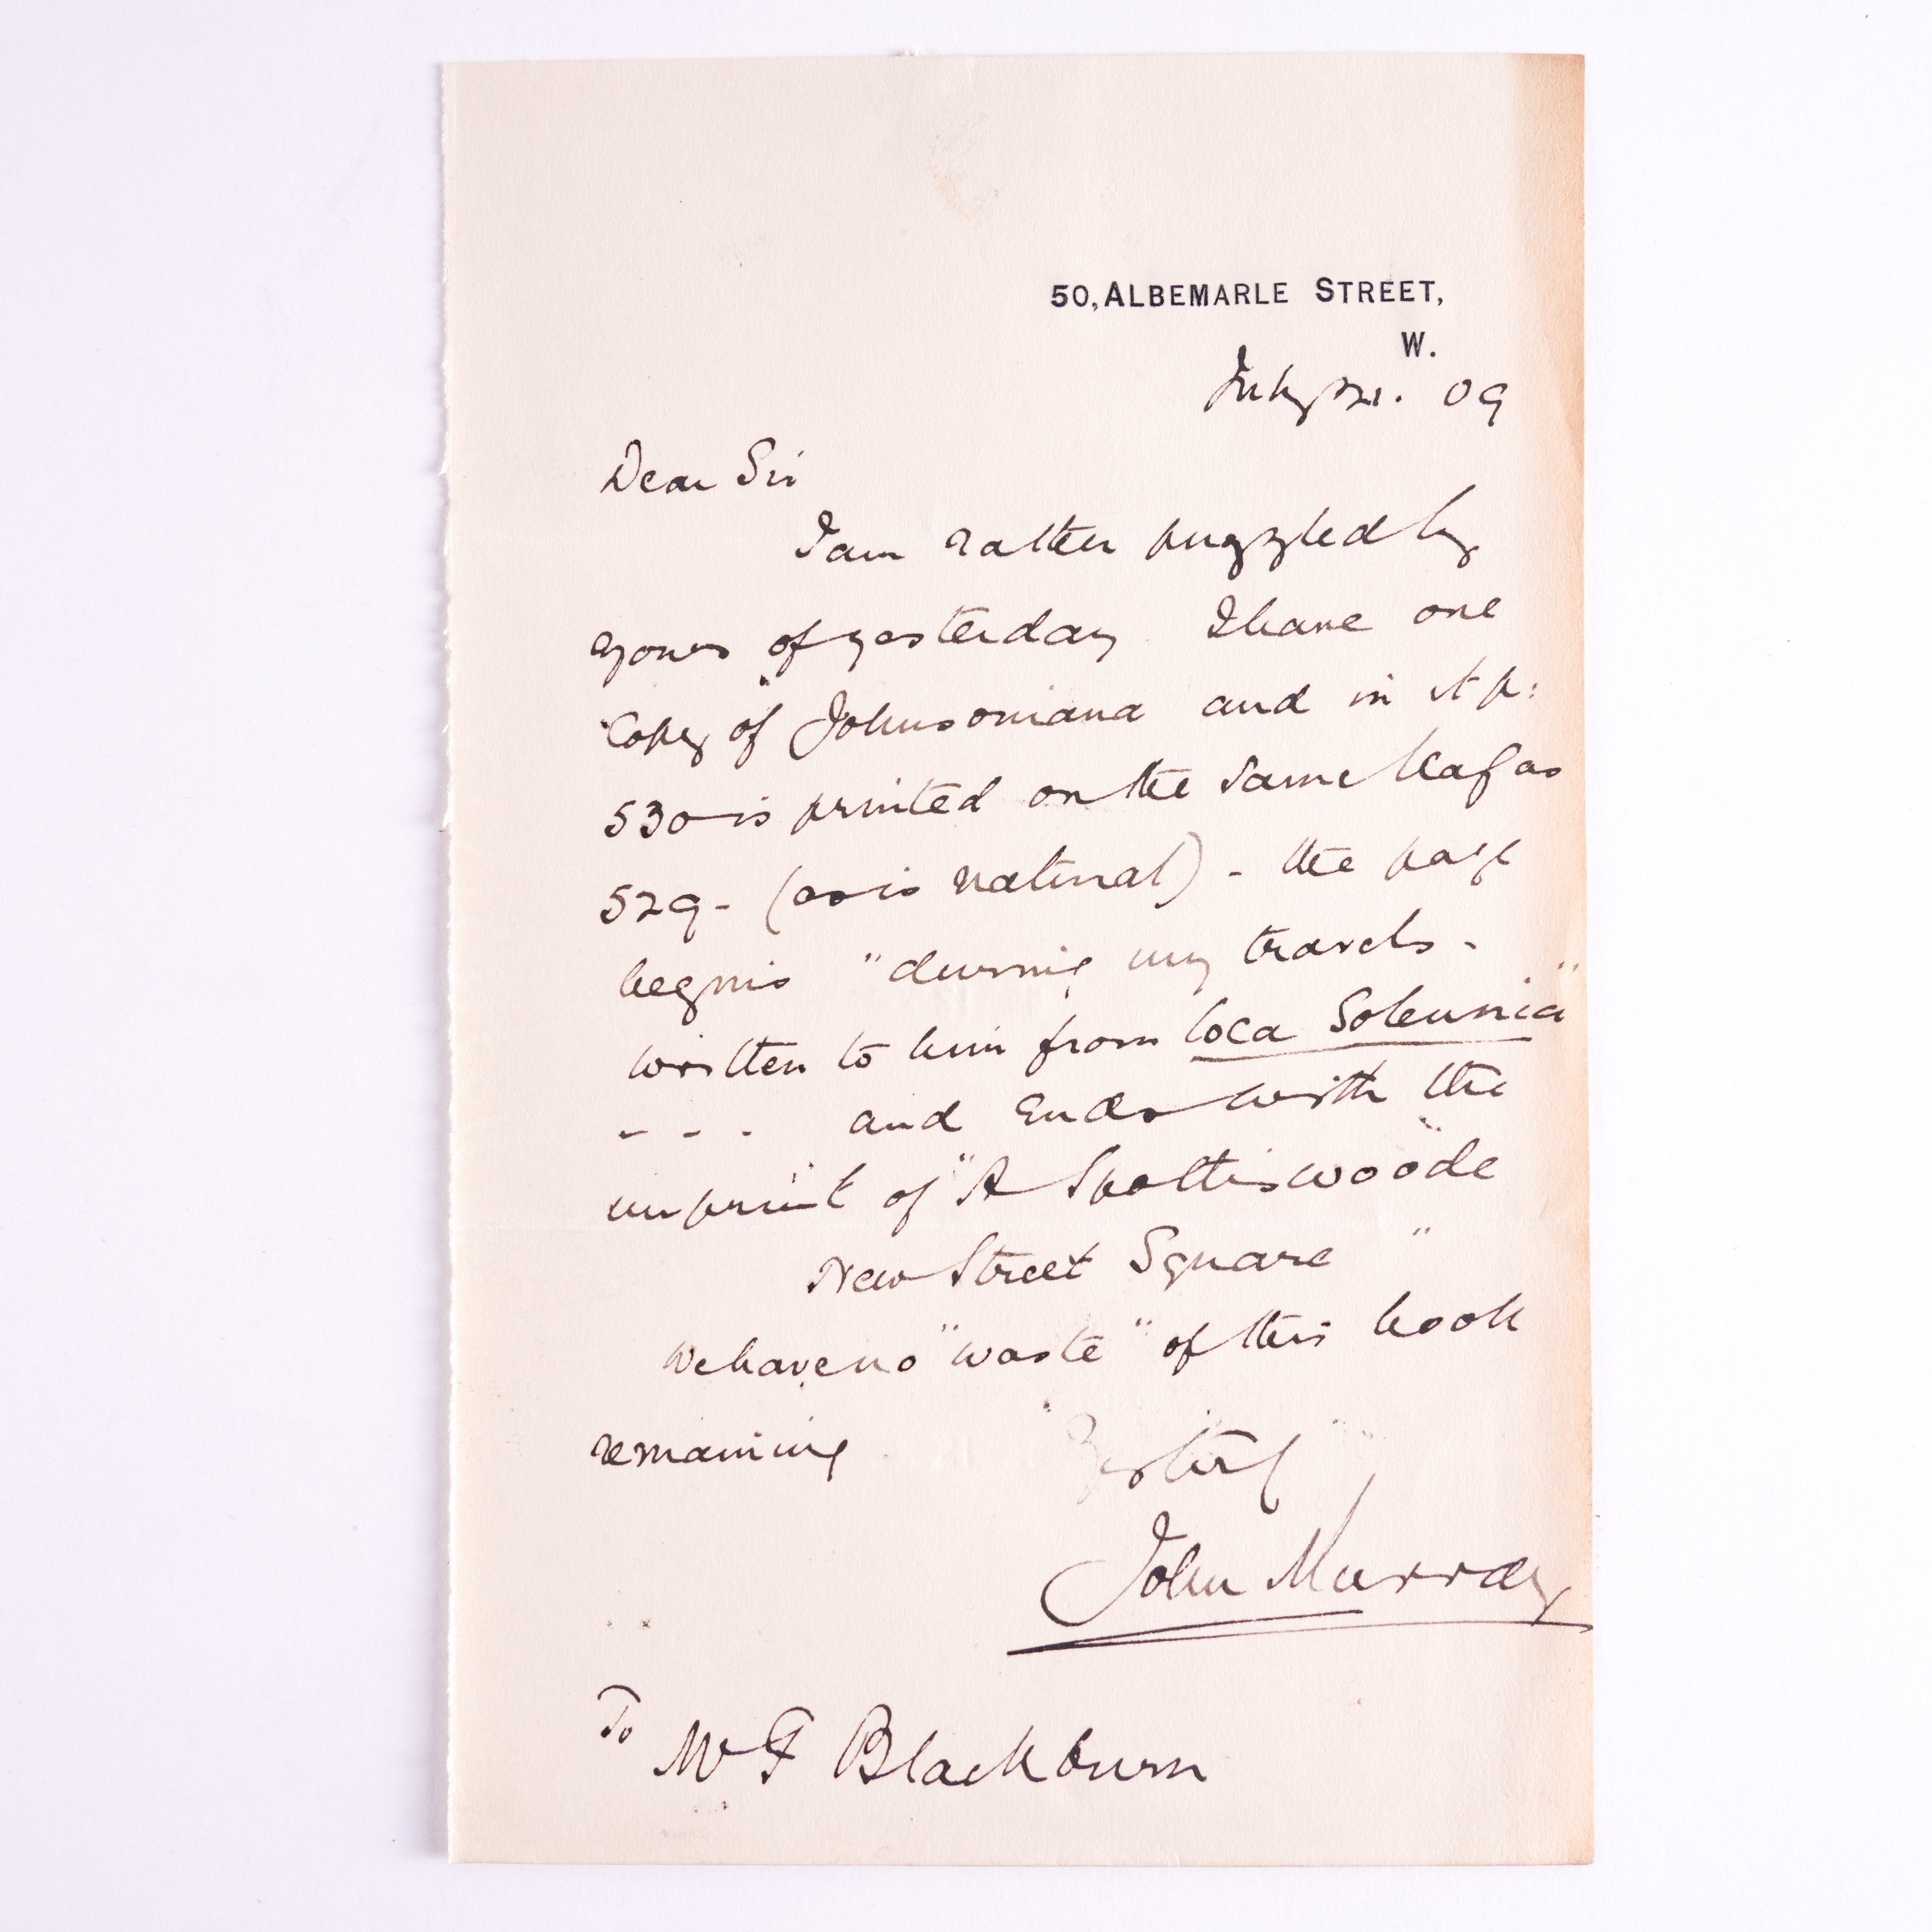 50, ALBEMARLE STREET,
W.
July 21. 09
Dear Sir
I am rather puzzled by
yours of yesterday. I have one
Copy of "Johnsoniana and in it p:
530 is printed on the same leaf as
529 - (as is natural) - the page
begins "during my travels -
written to him from loca Solennia"
- - - and Ends with the
imprint of "A Spottiswoode
New Street Square"
We have no "waste" of this book
remaining
John Murray
To Mr F Blackburn